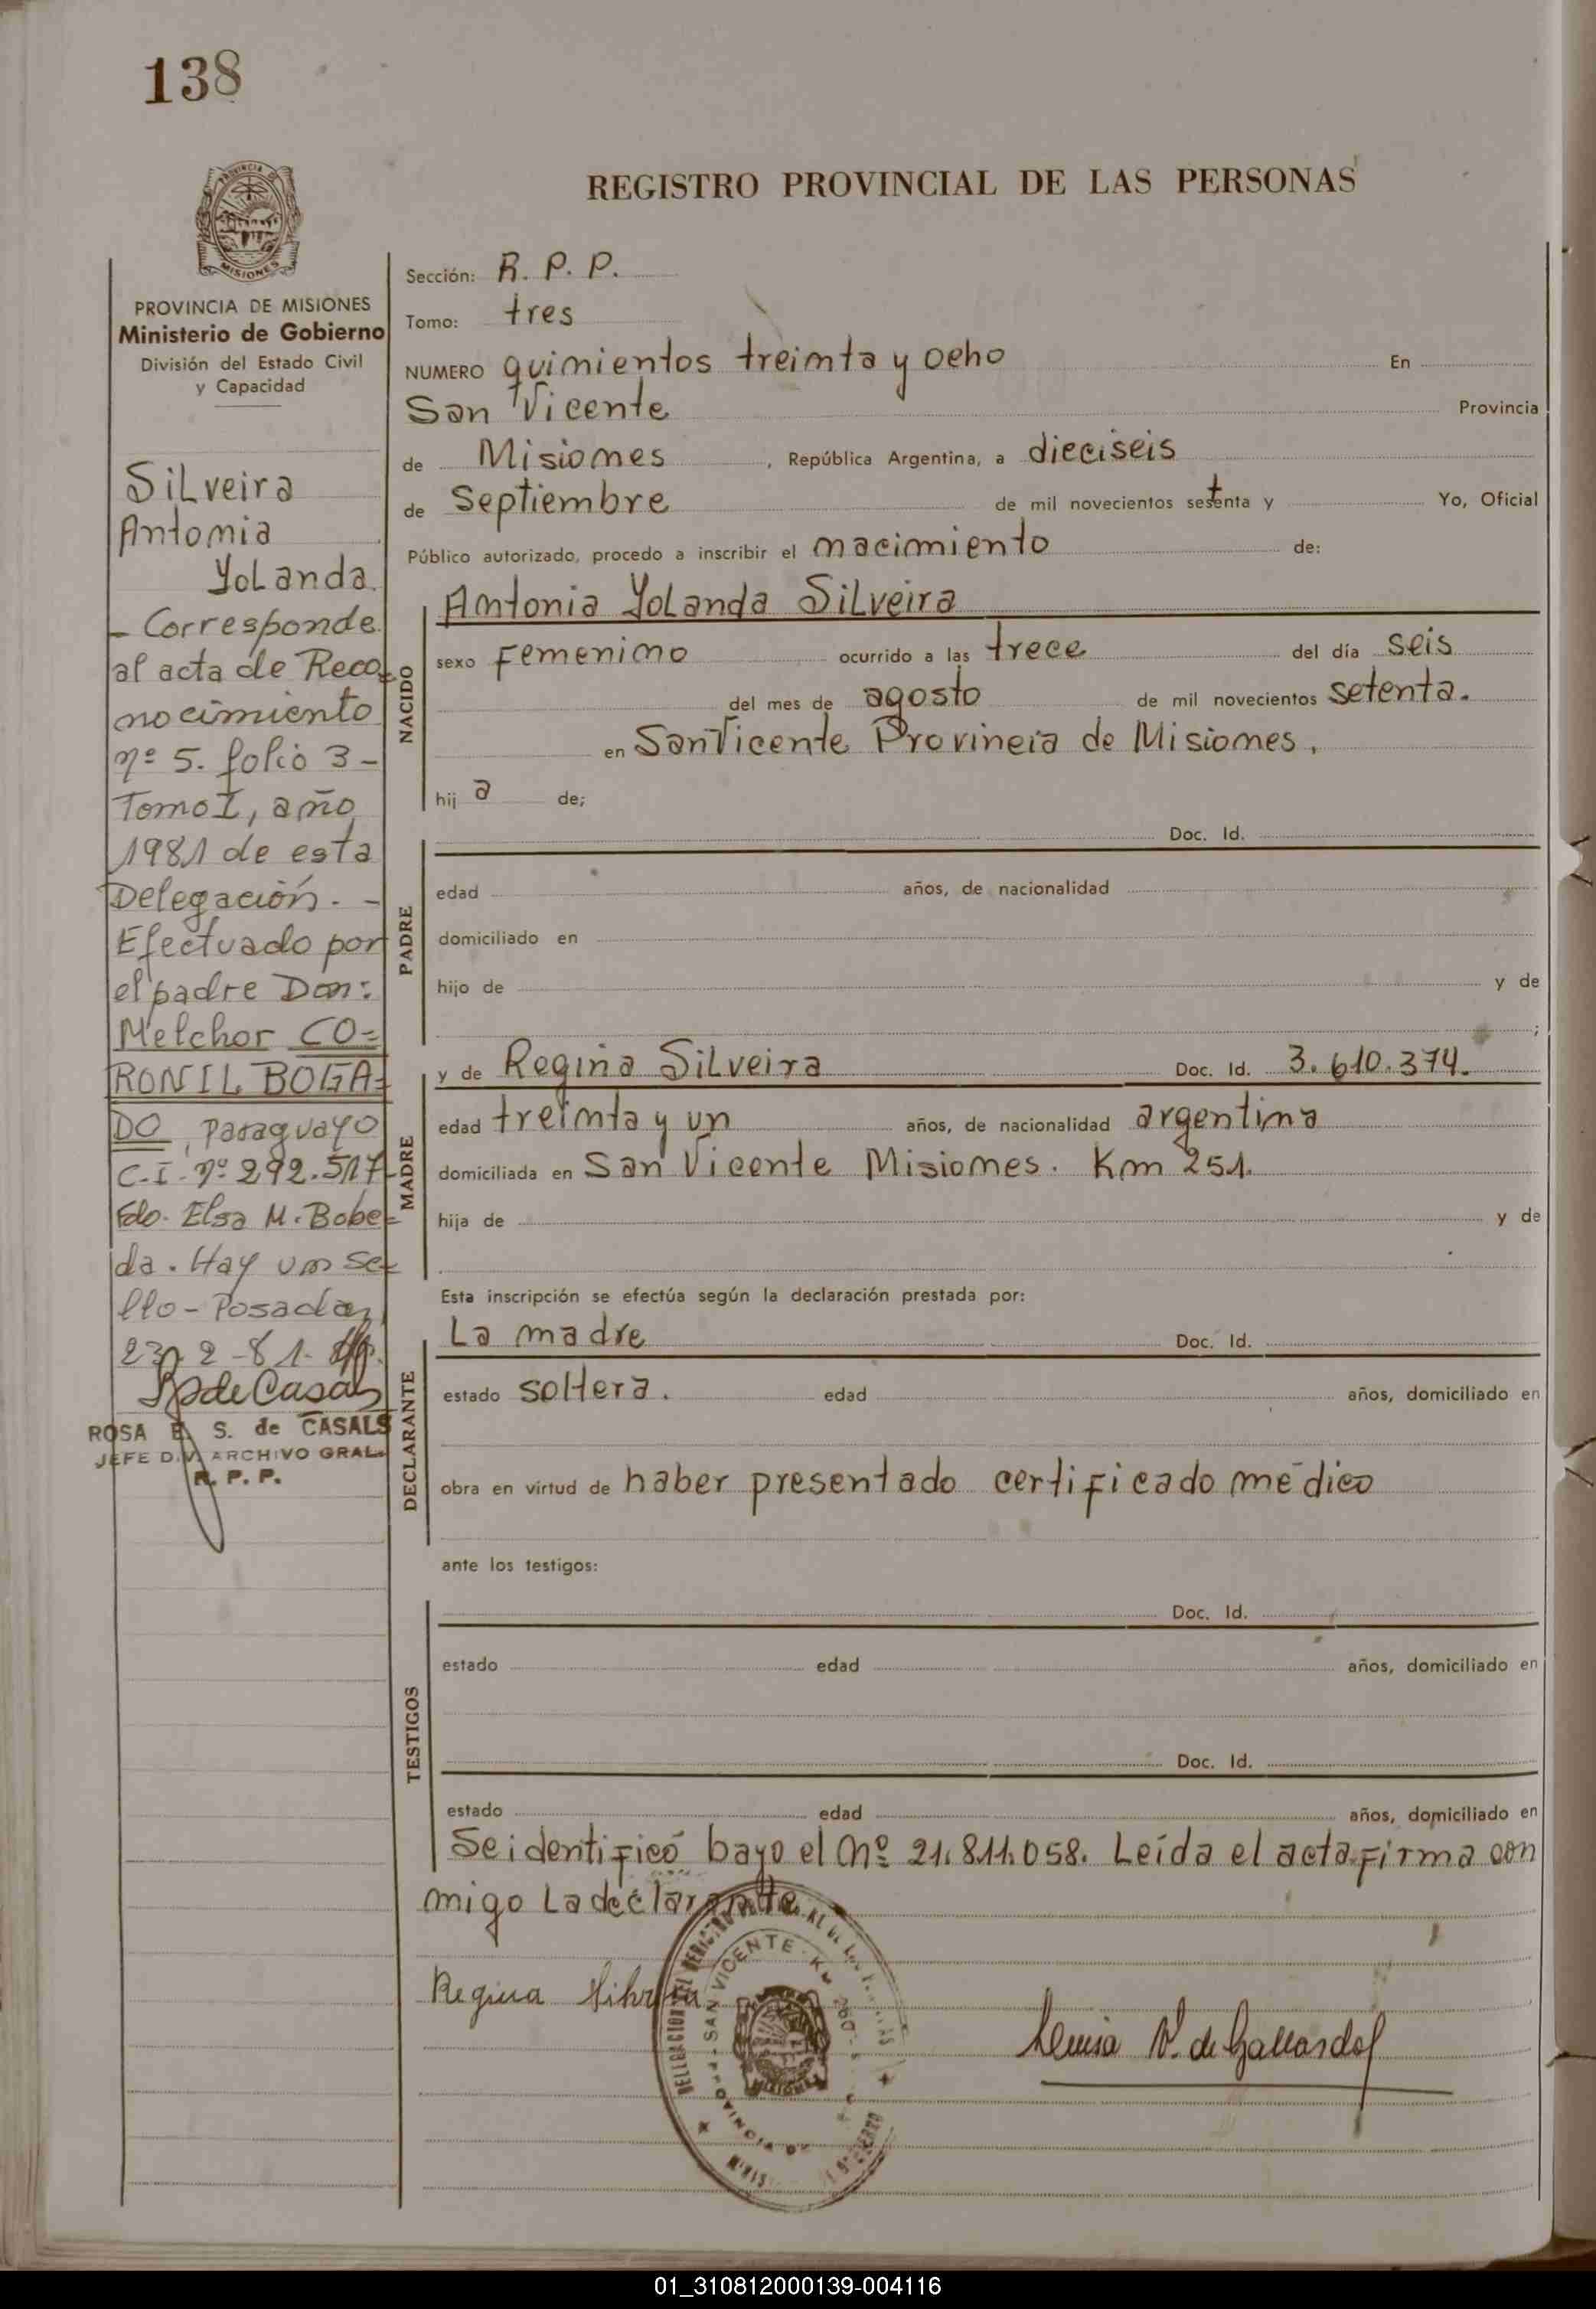 138
REGISTRO PROVINCIAL DE LAS PERSONAS
PROVINCIA DE MISIONES
Ministerio de Gobierno
División del Estado Civil
y Capacidad
Silveira
Antonia
Yolanda
- Corresponde
al acta de Reco-
nocimiento
nº 5. folio 3-
Tomo I, año
1981 de esta
Delegación. -
Efectuado por
el padre Don:
Melchor CO=
RONIL BOGA=
DO, Paraguayo
C.I. nº 292.517-
Fdo. Elsa M. Bobe=
da. Hay un se-
llo - Posadas,
23-2-81.
R de Casals
ROSA E. S. de CASALS
JEFE DIV. ARCHIVO GRAL.
R. P. P.
Sección: R. P. P.
Tomo: tres
NUMERO quinientos treinta y ocho En
San Vicente Provincia
de Misiones, República Argentina, a dieciseis
de Septiembre de mil novecientos setenta y Yo, Oficial
Público autorizado, procedo a inscribir el nacimiento de:
NACIDO
Antonia Yolanda Silveira
sexo Femenino ocurrido a las trece del día seis
del mes de agosto de mil novecientos setenta.
en San Vicente Provincia de Misiones.
hij a de;
PADRE
Doc. Id.
edad años, de nacionalidad
domiciliado en
hijo de y de
;
MADRE
y de Regina Silveira Doc. Id. 3.610.374.
edad treinta y un años, de nacionalidad argentina
domiciliada en San Vicente Misiones. Km 251.
hija de y de
Esta inscripción se efectúa según la declaración prestada por:
DECLARANTE
La madre Doc. Id.
estado soltera. edad años, domiciliado en
obra en virtud de haber presentado certificado médico
ante los testigos:
TESTIGOS
Doc. Id.
estado edad años, domiciliado en
Doc. Id.
estado edad años, domiciliado en
Se identificó bayo el nº 21.811.058. Leída el acta firma con
migo La declarante
Regina Silveira
SAN VICENTE
MISIONES
de Gallardo
01_310812000139-004116